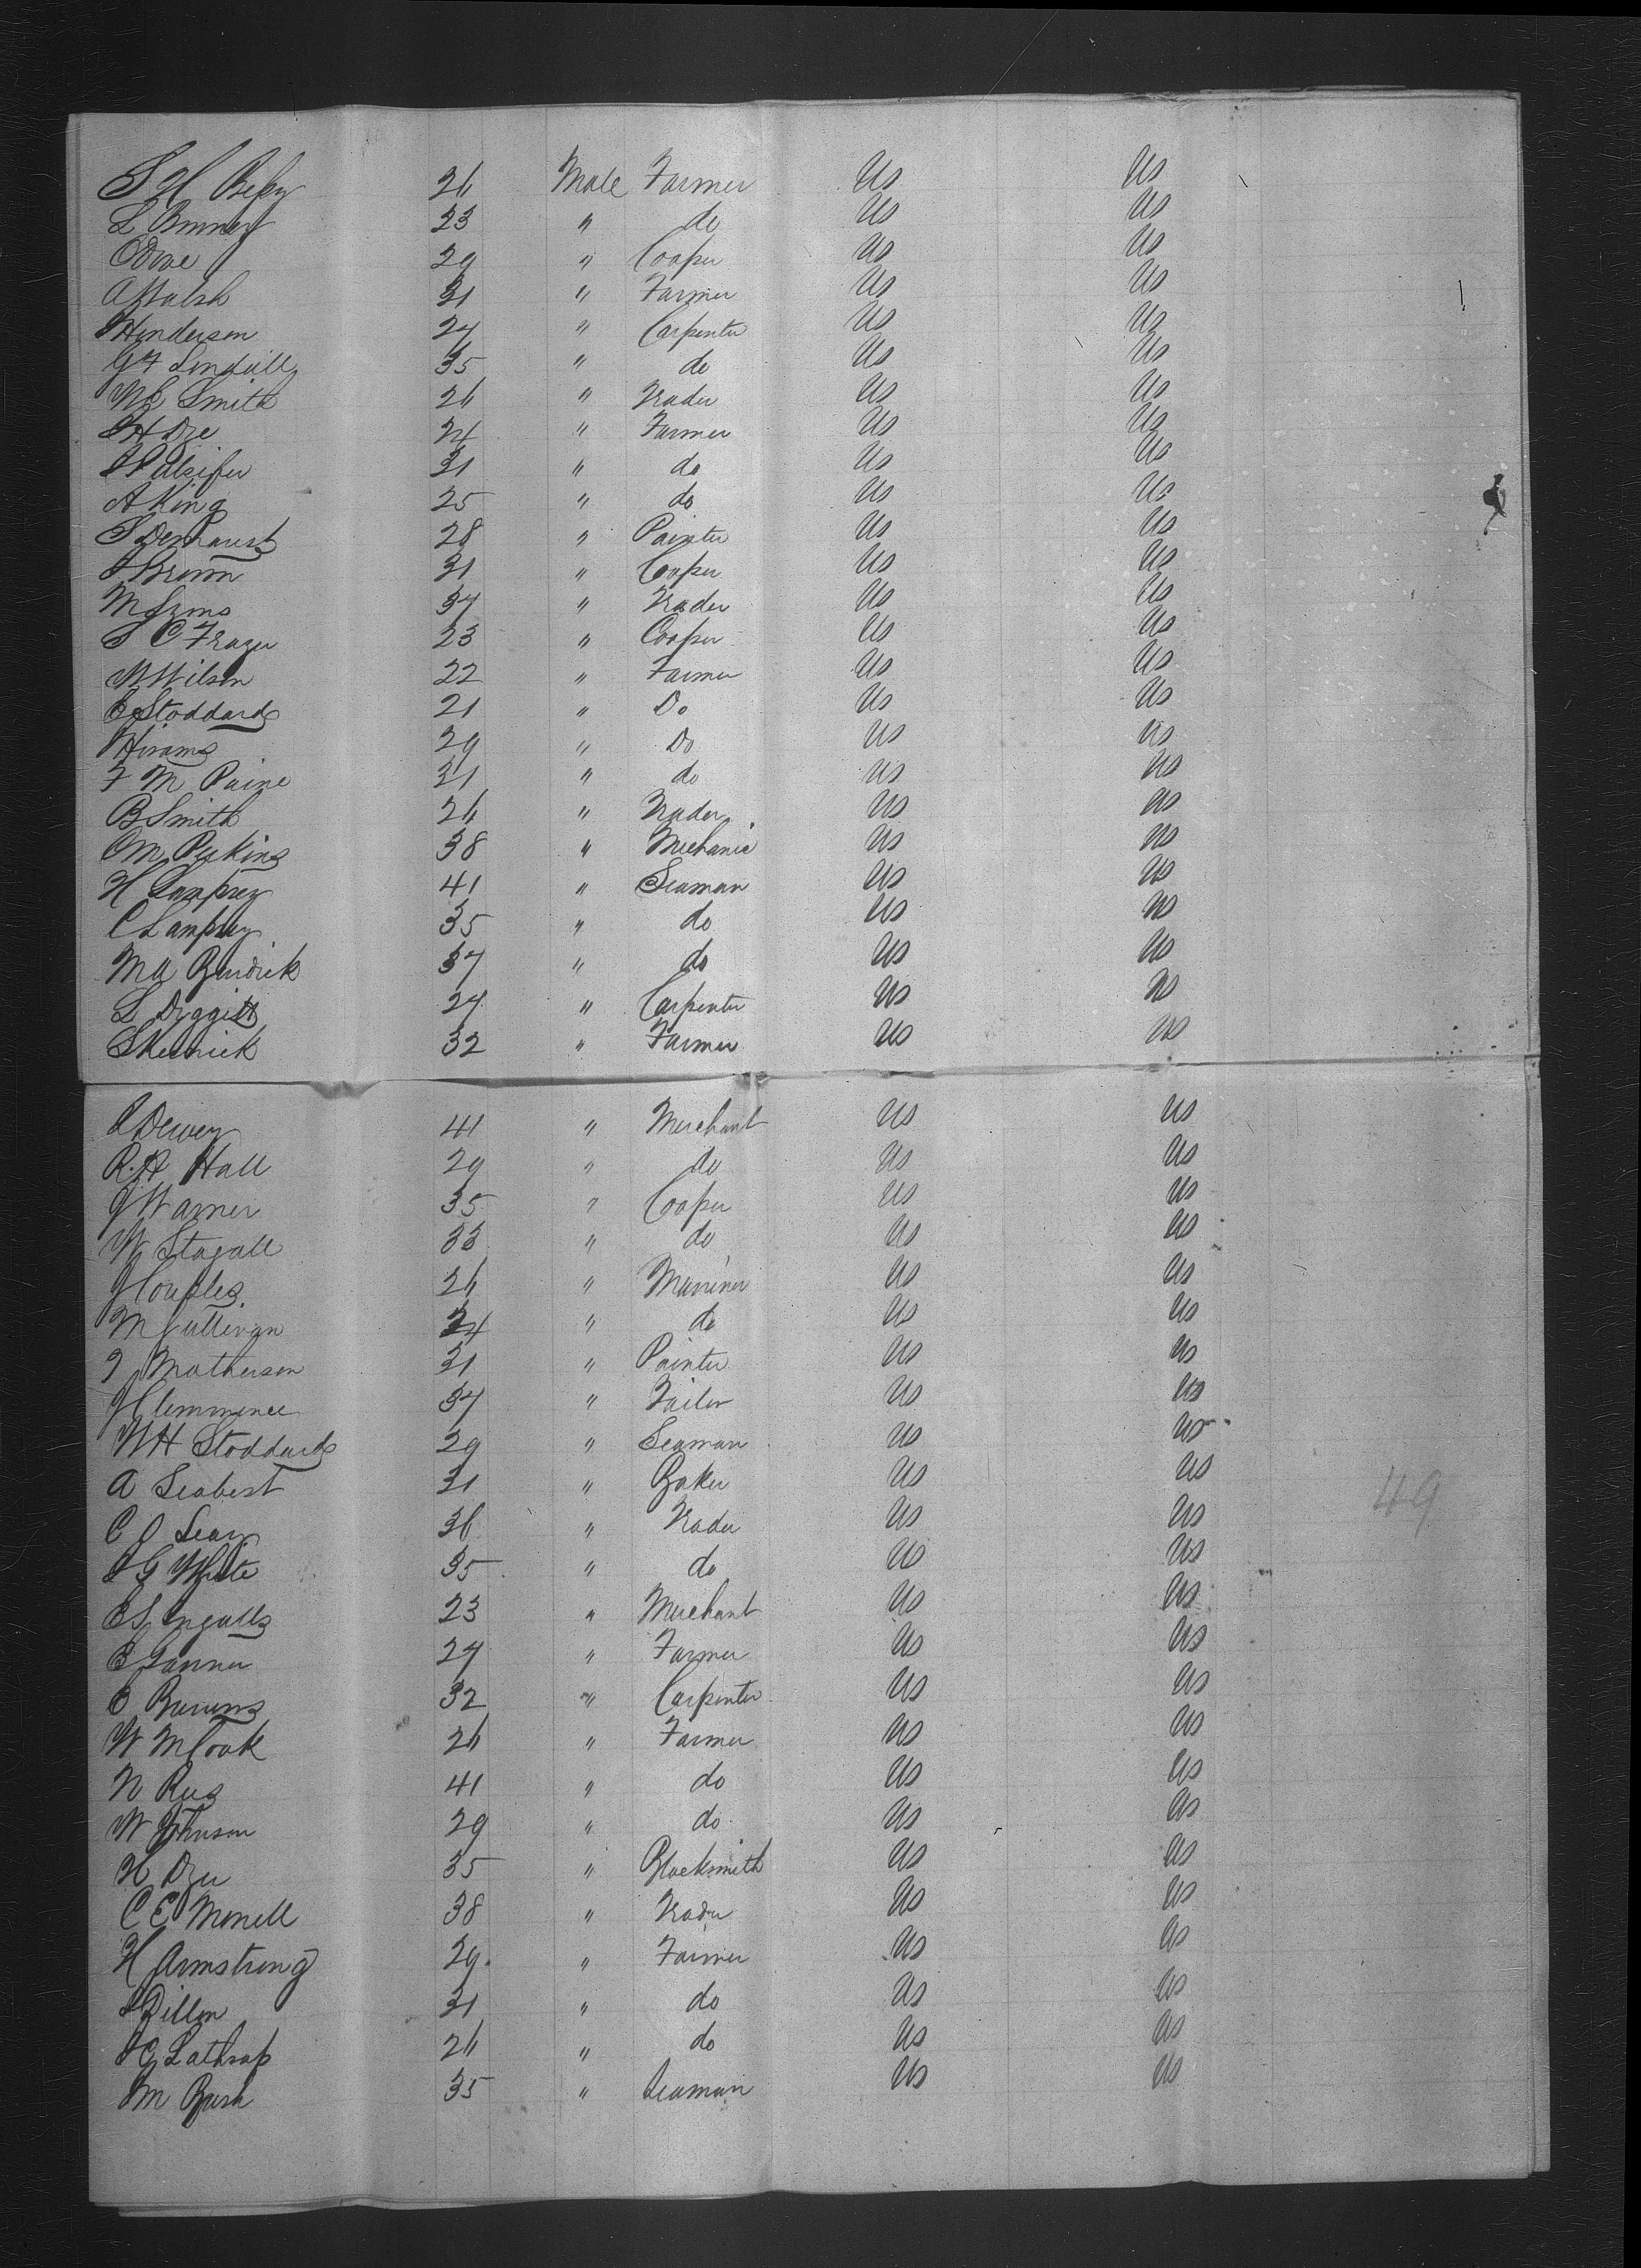 S H Besby 26 Male Farmer US US
L Emmery 23 " do US US
O Dow 29 " Cooper US US
A Walsh 31 " Farmer US US
Henderson 24 " Carpenter US US
G F Lindall 35 " do US US
W E Smith 26 " Trader US US
S H Dye 24 " Farmer US US
S Pulsifer 31 " do US US
A King 25 " do US US
S Demharest 28 " Painter US US
J Brown 31 " Cooper US US
M Lyms 37 " Trader US US
S C Frazer 23 " Cooper US US
W Wilson 22 " Farmer US US
E Stoddard 21 " Do US US
Hirams 29 " Do US US
F M Paine 31 " do US US
B Smith 26 " Trader US US
O M Perkins 38 " Mechanic US US
H Lamprey 41 " Seaman US US
C Lamprey 35 " do US US
M A Burdick 37 " do US US
L Dyggett 24 " Carpenter US US
S Merrick 32 " Farmer US US
S Dewey 41 " Merchant US US
R. A Hall 29 " do US US
J Warner 35 " Cooper US US
W Stagall 33 " do US US
J Couples 26 " Mariner US US
M Sullivan 24 " do US US
T Matherson 31 " Painter US US
J Clemmence 37 " Tailor US US
W H Stoddard 29 " Seaman US US
A Seabest 31 " Baker US US
C O Sears 36 " Trader US US
S G White 35 " do US US
E S Ingalls 23 " Merchant US US
E Garner 24 " Farmer US US
E Burums 32 " Carpenter US US
W M Cook 26 " Farmer US US
N Rees 41 " do US US
W Johnson 29 " do US US
H Dyer 35 " Blacksmith US US
C E Morrell 38 " Trader US US
H Armstrong 29 " Farmer US US
S Dillon 31 " do US US
S G Lathrop 26 " do US US
M Bush 35 " Seaman US US
49